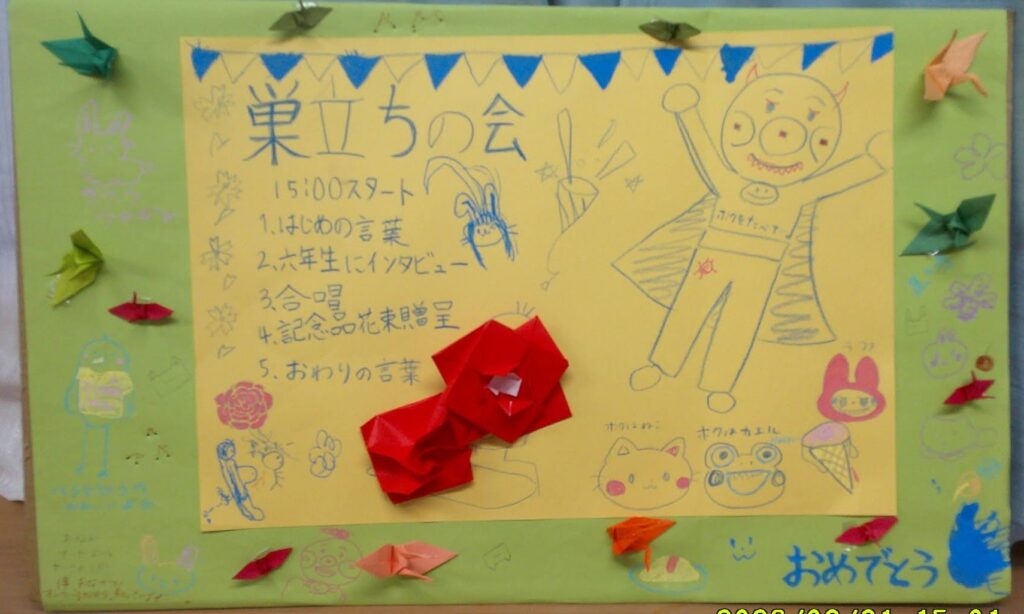 巣立ちの会
15:00スタート
1.はじめの言葉
2.六年生にインタビュー
3.合唱
4.記念品花束贈呈
5.おわりの言葉
ボクをたべて
ボクはねこ
ボクはカエル
おめでとう